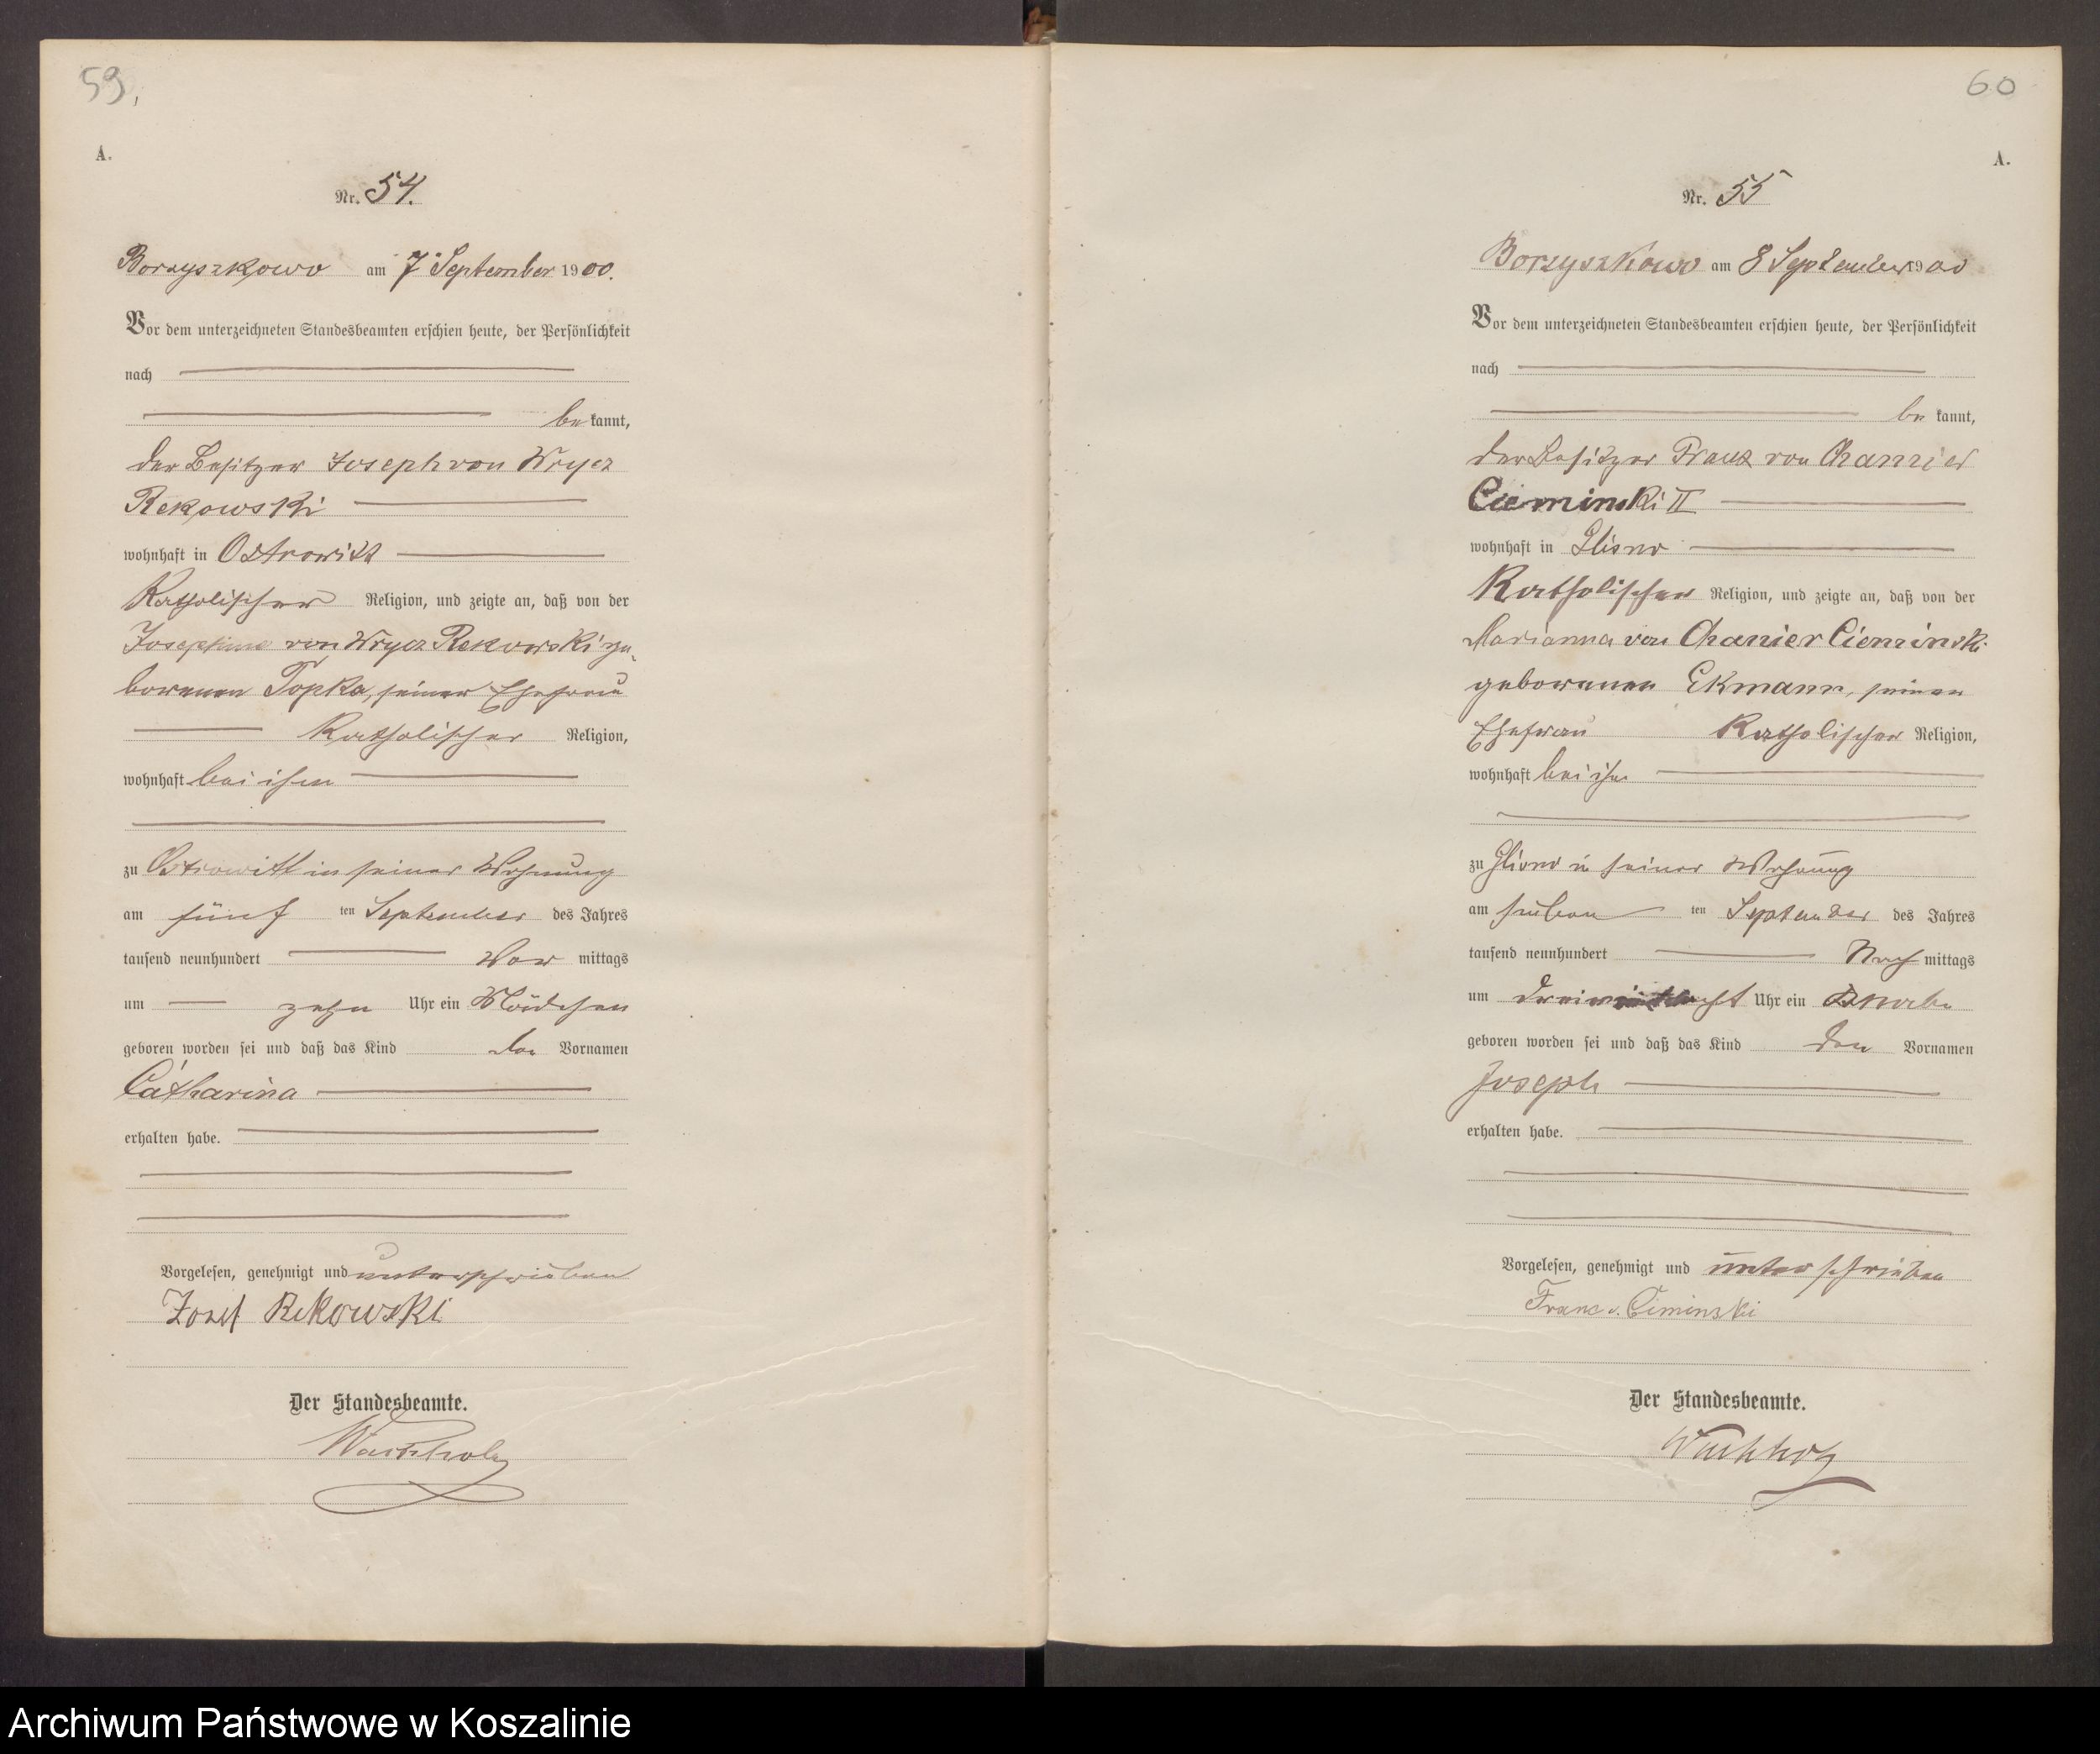 59.
A.
Nr. 54.
Borzyszkowo am 7 September 1900.
Vor dem unterzeichneten Standesbeamten erschien heute, der Persönlichkeit
nach
bekannt,
der Besitzer Joseph von Wrycz
Rekowski
wohnhaft in Ostrowitt
Katholischer Religion, und zeigte an, daß von der
Josephine von Wrycz Rekowski ge-
borenen Topka, seiner Ehefrau
Katholischer Religion,
wohnhaft bei ihm
zu Ostrowitt in seiner Wohnung
am fünf ten September des Jahres
tausend neunhundert Vor mittags
um zehn Uhr ein Mädchen
geboren worden sei und daß das Kind den Vornamen
Catharina
erhalten habe.
Vorgelesen, genehmigt und unterschrieben
Josef Rekowski
Der Standesbeamte.
60
A.
Nr. 55
Borzyszkowo am 8 September 1900
Vor dem unterzeichneten Standesbeamten erschien heute, der Persönlichkeit
nach
be kannt,
der Besitzer Franz von Chamier
Cieminski II
wohnhaft in Glisno
Katholischer Religion, und zeigte an, daß von der
Marianna von Chamier Cieminski
geborenen Ekmann, seiner
Ehefrau Katholischer Religion,
wohnhaft bei ihm
zu Glisno in seiner Wohnung
am sieben ten September des Jahres
tausend neunhundert Nach mittags
um Uhr ein Knabe
geboren worden sei und daß das Kind den Vornamen
Joseph
erhalten habe.
Vorgelesen, genehmigt und unterschrieben
Franc v. Ciminski
Der Standesbeamte.
Archiwum Państwowe w Koszalinie